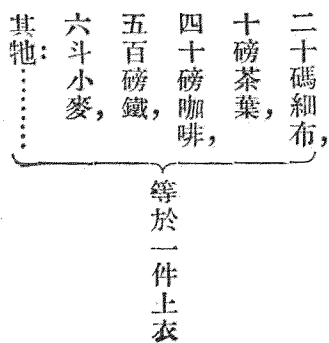 二十碼細布，
十磅茶葉，
四十磅咖啡，
五百磅鐵，
六斗小麥，
其牠：………
等於一件上衣